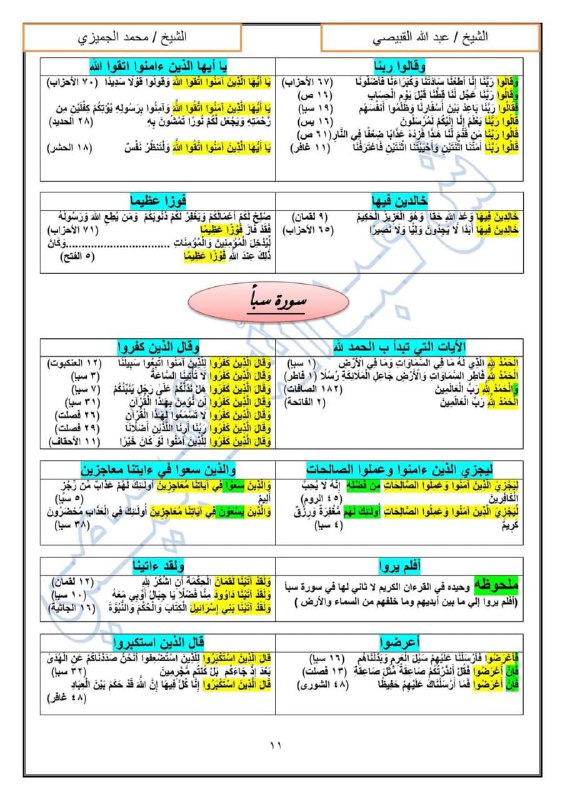 الشيخ / عبد الله القبيصي
الشيخ / محمد الجميزي
وقالوا ربنا
وقالوا رَبَّنَا إِنَّا أَطَعْنَا سَادَتَنَا وَكُبَرَاءَنَا فَأَضَلُّونَا (٦٧ الأحزاب)
وقالوا رَبَّنَا عَجِّل لَّنَا قِطَّنَا قَبْلَ يَوْمِ الْحِسَابِ (١٦ ص)
فَقَالُوا رَبَّنَا بَاعِدْ بَيْنَ أَسْفَارِنَا وَظَلَمُوا أَنفُسَهُمْ (١٩ سبا)
قَالُوا رَبُّنَا يَعْلَمُ إِنَّا إِلَيْكُمْ لَمُرْسَلُونَ (١٦ يس)
قَالُوا رَبَّنَا مَن قَدَّمَ لَنَا هَذَا فَزِدْهُ عَذَابًا ضِعْفًا فِي النَّارِ (٦١ ص)
قَالُوا رَبَّنَا أَمَتَّنَا اثْنَتَيْنِ وَأَحْيَيْتَنَا اثْنَتَيْنِ فَاعْتَرَفْنَا (١١ غافر)
يا أيها الذين ءامنوا اتقوا الله
يَا أَيُّهَا الَّذِينَ آمَنُوا اتَّقُوا اللَّهَ وَقُولُوا قَوْلًا سَدِيدًا (٧٠ الأحزاب)
يَا أَيُّهَا الَّذِينَ آمَنُوا اتَّقُوا اللَّهَ وَآمِنُوا بِرَسُولِهِ يُؤْتِكُمْ كِفْلَيْنِ مِن
رَّحْمَتِهِ وَيَجْعَل لَّكُمْ نُورًا تَمْشُونَ بِهِ (٢٨ الحديد)
يَا أَيُّهَا الَّذِينَ آمَنُوا اتَّقُوا اللَّهَ وَلْتَنظُرْ نَفْسٌ (١٨ الحشر)
خالدين فيها
خَالِدِينَ فِيهَا وَعْدَ اللَّهِ حَقًّا وَهُوَ الْعَزِيزُ الْحَكِيمُ (٩ لقمان)
خَالِدِينَ فِيهَا أَبَدًا لَّا يَجِدُونَ وَلِيًّا وَلَا نَصِيرًا (٦٥ الأحزاب)
فوزا عظيما
صْلِحْ لَكُمْ أَعْمَالَكُمْ وَيَغْفِرْ لَكُمْ ذُنُوبَكُمْ وَمَن يُطِعِ اللَّهَ وَرَسُولَهُ
فَقَدْ فَازَ فَوْزًا عَظِيمًا (٧١ الأحزاب)
لِّيُدْخِلَ الْمُؤْمِنِينَ وَالْمُؤْمِنَاتِ ..............................وَكَانَ
ذَلِكَ عِندَ اللَّهِ فَوْزًا عَظِيمًا (٥ الفتح)
سورة سبأ
الآيات التي تبدأ ب الحمد لله
الْحَمْدُ لِلَّهِ الَّذِي لَهُ مَا فِي السَّمَاوَاتِ وَمَا فِي الْأَرْضِ (١ سبا)
الْحَمْدُ لِلَّهِ فَاطِرِ السَّمَاوَاتِ وَالْأَرْضِ جَاعِلِ الْمَلَائِكَةِ رُسُلًا (١ فاطر)
وَالْحَمْدُ لِلَّهِ رَبِّ الْعَالَمِينَ (١٨٢ الصافات)
الْحَمْدُ لِلَّهِ رَبِّ الْعَالَمِينَ (٢ الفاتحة)
وقال الذين كفروا
وَقَالَ الَّذِينَ كَفَرُوا لِلَّذِينَ آمَنُوا اتَّبِعُوا سَبِيلَنَا (١٢ العنكبوت)
وَقَالَ الَّذِينَ كَفَرُوا لَا تَأْتِينَا السَّاعَةُ (٣ سبا)
وَقَالَ الَّذِينَ كَفَرُوا هَلْ نَدُلُّكُمْ عَلَى رَجُلٍ يُنَبِّئُكُمْ (٧ سبا)
وَقَالَ الَّذِينَ كَفَرُوا لَن نُّؤْمِنَ بِهَذَا الْقُرْآنِ (٣١ سبا)
وَقَالَ الَّذِينَ كَفَرُوا لَا تَسْمَعُوا لِهَذَا الْقُرْآنِ (٢٦ فصلت)
وَقَالَ الَّذِينَ كَفَرُوا رَبَّنَا أَرِنَا اللَّذَيْنِ أَضَلَّانَا (٢٩ فصلت)
وَقَالَ الَّذِينَ كَفَرُوا لِلَّذِينَ آمَنُوا لَوْ كَانَ خَيْرًا (١١ الأحقاف)
ليجزي الذين ءامنوا وعملوا الصالحات
لِيَجْزِيَ الَّذِينَ آمَنُوا وَعَمِلُوا الصَّالِحَاتِ مِن فَضْلِهِ إِنَّهُ لَا يُحِبُّ
الْكَافِرِينَ (٤٥ الروم)
لِّيَجْزِيَ الَّذِينَ آمَنُوا وَعَمِلُوا الصَّالِحَاتِ أُولَئِكَ لَهُم مَّغْفِرَةٌ وَرِزْقٌ
كَرِيمٌ (٤ سبا)
والذين سعوا في ءايتنا معاجزين
وَالَّذِينَ سَعَوْا فِي آيَاتِنَا مُعَاجِزِينَ أُولَئِكَ لَهُمْ عَذَابٌ مِّن رِّجْزٍ
أَلِيمٌ (٥ سبا)
وَالَّذِينَ يَسْعَوْنَ فِي آيَاتِنَا مُعَاجِزِينَ أُولَئِكَ فِي الْعَذَابِ مُحْضَرُونَ
(٣٨ سبا)
أفلم يروا
ملحوظه وحيده في القرءان الكريم لا ثاني لها في سورة سبأ
(أفلم يروا إلي ما بين أيديهم وما خلفهم من السماء والأرض )
ولقد ءاتينا
وَلَقَدْ آتَيْنَا لُقْمَانَ الْحِكْمَةَ أَنِ اشْكُرْ لِلَّهِ (١٢ لقمان)
وَلَقَدْ آتَيْنَا دَاوُودَ مِنَّا فَضْلًا يَا جِبَالُ أَوِّبِي مَعَهُ (١٠ سبا)
وَلَقَدْ آتَيْنَا بَنِي إِسْرَائِيلَ الْكِتَابَ وَالْحُكْمَ وَالنُّبُوَّةَ (١٦ الجاثية)
أعرضوا
فَأَعْرَضُوا فَأَرْسَلْنَا عَلَيْهِمْ سَيْلَ الْعَرِمِ وَبَدَّلْنَاهُم (١٦ سبا)
فَإِنْ أَعْرَضُوا فَقُلْ أَنذَرْتُكُمْ صَاعِقَةً مِّثْلَ صَاعِقَةِ (١٣ فصلت)
فَإِنْ أَعْرَضُوا فَمَا أَرْسَلْنَاكَ عَلَيْهِمْ حَفِيظًا (٤٨ الشورى)
قال الذين استكبروا
قَالَ الَّذِينَ اسْتَكْبَرُوا لِلَّذِينَ اسْتُضْعِفُوا أَنَحْنُ صَدَدْنَاكُمْ عَنِ الْهُدَى
بَعْدَ إِذْ جَاءَكُم بَلْ كُنتُم مُّجْرِمِينَ (٣٢ سبا)
قَالَ الَّذِينَ اسْتَكْبَرُوا إِنَّا كُلٌّ فِيهَا إِنَّ اللَّهَ قَدْ حَكَمَ بَيْنَ الْعِبَادِ
(٤٨ غافر)
١١